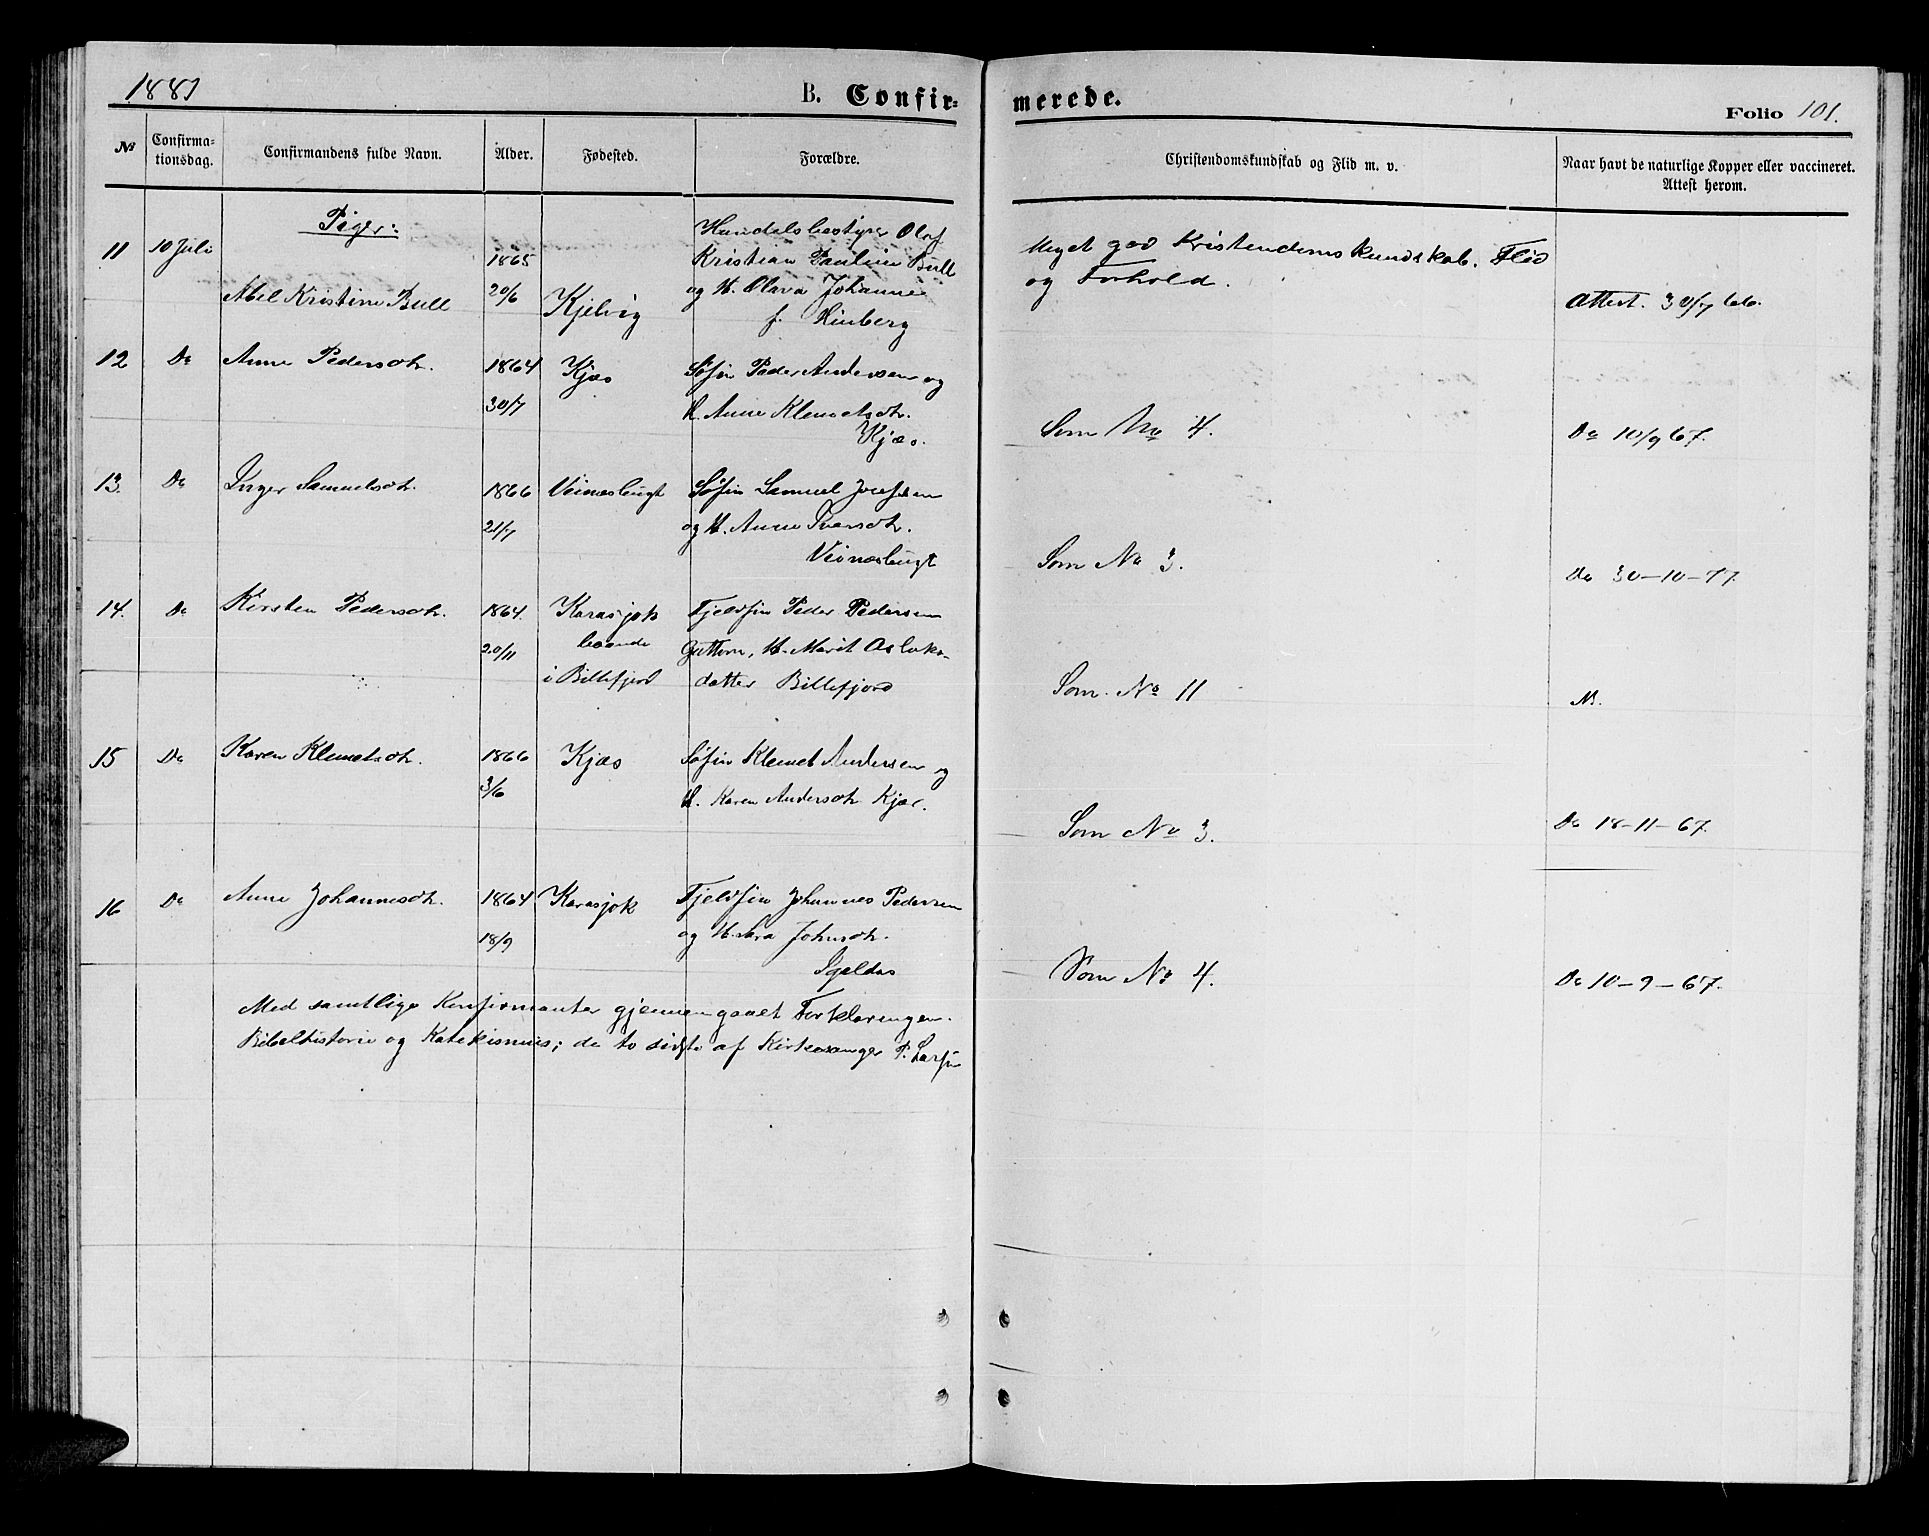 1881
B. Confir=
merede.
Folio 101.
№
Confirma=
tionsdag.
Confirmandens fulde Navn.
Alder.
Fødested.
Forældre.
Christendomskundskab og Flid m. v.
Naar havt de naturlige Kopper eller vaccineret.
Attest herom.
Piger:
11 10 Juli Abel Kristine Bull 1865
20/6 Kjelvig
Handelsbestyrer Olaf
Kristian Pauline Bull
og H. Olava Johanne
f. Hinberg
Meget god Kristendomskundskab. Flid
og Forhold.
Attest. 30/7 66.
12 Do Anne Pedersdtr. 1864
30/7 Kjæs
Søfin Peder Andersen og
H. Anne Klemetsdtr.
Kjæs.
Som No 4.
Do 10/9 67.
13. Do Inger Samuelsdtr. 1866
21/7 Veinesbugt
Søfin Samuel Josefsen
og H. Anne Iversdtr.
Veinesbugt
Som No 3.
Do 30-10-77.
14. Do Kirsten Pedersdtr. 1864.
20/11 Karasjok
boende
i Billefjord
Fjeldfin Peder Pedersen
Guttorm, H. Marit Aslaks-
datter Billefjord
Som No 11
15 Do Karen Klemetsdtr. 1866
3/6 Kjæs
Søfin Klemet Andersen og
H. Karen Andersdtr Kjæs.
Som No 3.
Do 18-11-67.
16 Do Anne Johannesdtr. 1864
18/9 Karasjok
Fjeldfin Johannes Pedersen
og H. Sara Johnsdtr.
Som No 4.
Do 10-9-67.
Med samtlige Konfirmanter gjennemgaaet Forklaringen.
Bibelhistorie og Katekismus; de to sidste af Kirkesanger P.